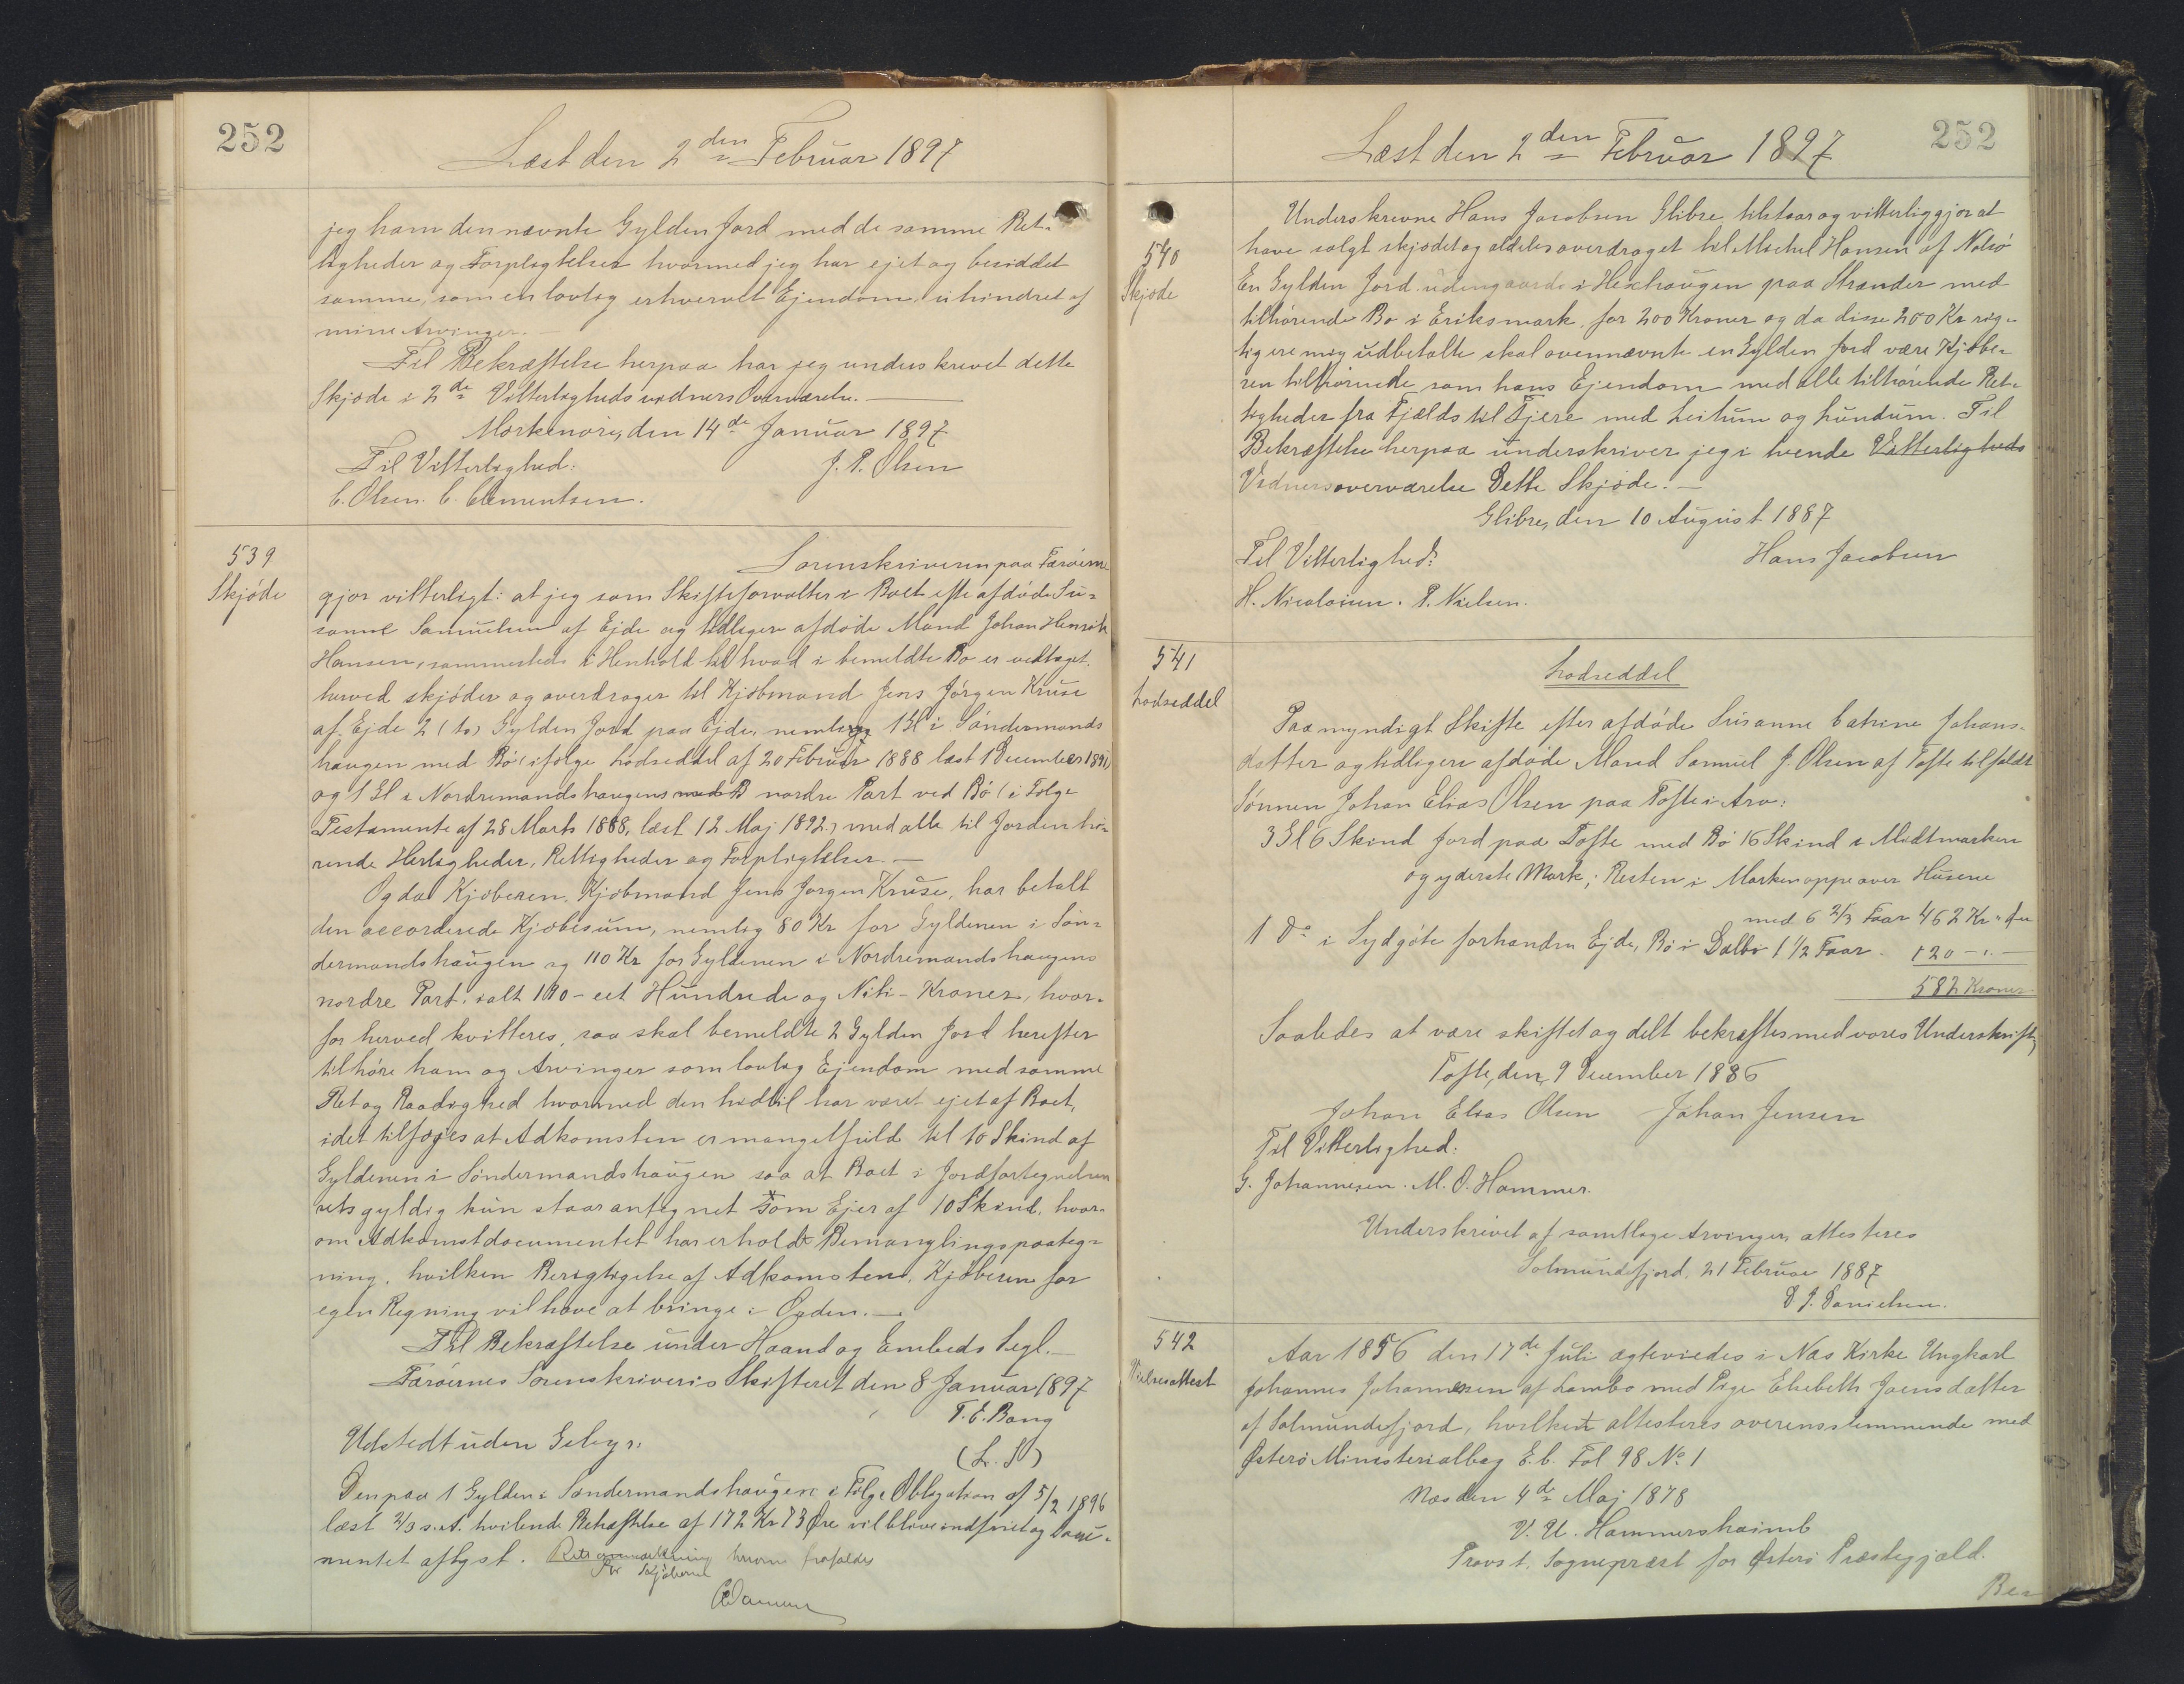 252
Læst den 2den Februar 1897
jeg ham den nævnte Gylden Jord med de samme Ret-
tigheder og Forpligtelser hvormed jeg har ejet og besiddet
samme, som en lovlig erhvervelt Ejendom, uhindret af
mine Arvinger.
Til Bekræftelse herpaa har jeg underskrevet dette
Skjøde i 2de Vitterligheds vidners Overværelse.
Morkenøre, den 14de Januar 1897
Til Vitterlighed: J. P. Olsen
C. Olsen. C. Clementsen.
539
Skjøde
Sorenskriveren paa Færøerne
gjør vitterligt: at jeg som Skifteforvalter i Boet efter afdøde Su-
sanne Samuelsen af Ejde og tidligere afdøde Mand Johan Henrik
Hansen, sammesteds i Henhold til hvad i bemeldte Bo er vedtaget,
herved skjøder og overdrager til Kjøbmand Jens Jørgen Kruse
af Ejde 2 (to) Gylden Jord paa Ejde, nemlig 1 Gl i Søndermands
haugen med Bø (ifølge Lodseddel af 20 Februar 1888 læst 1 December 1891)
og 1 Gl i Nordremandshaugens med B nordre Part ved Bø (i Følge
Testamente af 28 Marts 1888, læst 12 Maj 1892.) med alle til Jorden hø-
rende Herligheder, Rettigheder og Forpligtelser.
Og da Kjøberen, Kjøbmand Jens Jørgen Kruse, har betalt
den accorderede Kjøbesum, nemlig 80 Kr for Gyldenen i Søn-
dermandshaugen og 110 Kr for Gyldenen i Nordremandshaugens
nordre Part, ialt 190 - eet Hundrede og Niti - Kroner, hvor-
for herved kvitteres, saa skal bemeldte 2 Gylden Jord herefter
tilhøre ham og Arvinger som lovlig Ejendom med samme
Ret og Raadighed hvormed den hidtil har været ejet af Boet,
idet tilføjes at Adkomsten er mangelfuld til 10 Skind af
Gyldenen i Søndermandshaugen saa at Boet i Jordfortegnelsen
retsgyldig kun staar antegnet som Ejer af 10 Skind, hvor-
om Adkomstdocumentet har erholdt Bemanglingspaateg-
ning, hvilken Berigtigelse af Adkomsten, Kjøberen for
egen Regning vil have at bringe i Orden.
Til Bekræftelse under Haand og Embeds Segl.
Færøernes Sorenskriveris Skifteret den 8 Januar 1897
T. E. Bang
Udstedt uden Gebyr. (L. S)
Den paa 1 Gylden i Søndermandshaugen i Følge Obligation af 5/2 1896
læst 2/3 s. A. hvilende Behæftelse af 172 Kr 73 Øre vil blive indfriet og Docu-
mentet aflyst. Retsanmærkning herom frafaldes
For Skjøberne
252
Læst den 2den Februar 1897
540
Skjøde
Underskrevne Hans Jacobsen Glibre tilstaar og vitterliggjør at
have solgt skjødet og aldeles overdraget til Michel Hansen af Nolsø
En Gylden Jord udengaards i Hexhaugen paa Strænder med
tilhørende Bø i Eriksmark for 200 Kroner og da disse 200 Kr rig-
tig ere mig udbetalte skal ovennævnte en Gylden Jord være Kjøbe-
ren tilhørende som hans Ejendom med alle tilhørende Ret-
tigheder fra Fjælds til Fjere med luttum og hundum. Til
Bekræftelse herpaa underskriver jeg i tvende Vitterligheds
Vidnersoverværelse Dette Skjøde.
Glibre, den 10 August 1887
Til Vitterlighed: Hans Jacobsen
H. Nicolaisen. P. Nielsen.
541
Lodseddel
Lodseddel
Paa myndigt Skifte efter afdøde Susanne Catrine Johans-
datter og tidligere afdøde Mand Samuel J. Olsen af Tofte tilfaldt
Sønnen Johan Elias Olsen paa Tofte i Arv:
3 Gl 6 Skind Jord paa Tofte med Bø 16 Skind i Midtmarken
og yderste Mark; Resten i Marken oppe over Husene
med 6 2/3 Faar 462 Kr " Øre
1 Do i Sydgøte forhanden Ejde, Bø i Dalbø 1 1/2 Faar. 120 - " -
582 Kroner
Saaledes at være skiftet og delt bekræftes med vores Underskrift,
Tofte, den 9 December 1886
Johan Elias Olsen Johan Jensen
Til Vitterlighed:
G. Johannesen. M. O. Hammer.
Underskrivet af samtlige Arvinger, attesteres
Solmundefjord, 21 Februar 1887
D. J. Danielsen.
542
Vielsesattest
Aar 1856 den 17de Juli ægteviedes i Næs Kirke Ungkarl
Johannes Johannesen af Lambo med Pige Elsebeth Joensdatter
af Solmundefjord, hvilket attesteres overensstemmende med
Østerø Ministerialbog E. b. Fol 98 No 1
Næs den 4de Maj 1878
V. U. Hammershaimb
Provst, Sognepræst for Østerø Præstegjæld.
Ber